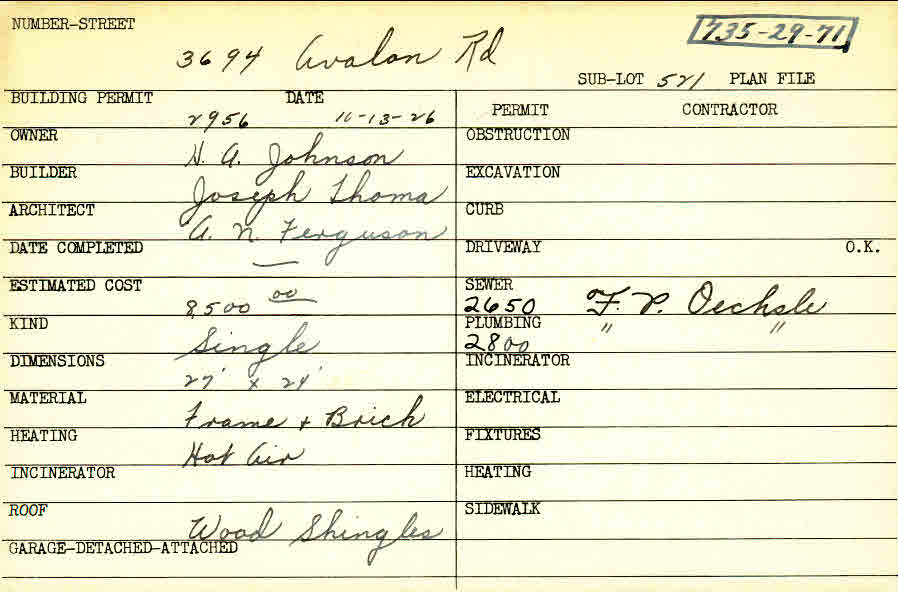 NUMBER-STREET
735-29-71
3694 Avalon Rd
SUB-LOT 521 PLAN FILE
BUILDING PERMIT DATE
2956 10-13-26
PERMIT CONTRACTOR
OWNER
N. A. Johnson
OBSTRUCTION
BUILDER
Joseph Thoma
EXCAVATION
ARCHITECT
A. N. Ferguson
CURB
DATE COMPLETED
—
DRIVEWAY O.K.
ESTIMATED COST
8,500 00
SEWER
2650 F. P. Oechsle
KIND
Single
PLUMBING
2800 " "
DIMENSIONS
27' x 24'
INCINERATOR
MATERIAL
Frame + Brick
ELECTRICAL
HEATING
Hot Air
FIXTURES
INCINERATOR
HEATING
ROOF
Wood Shingles
SIDEWALK
GARAGE-DETACHED-ATTACHED